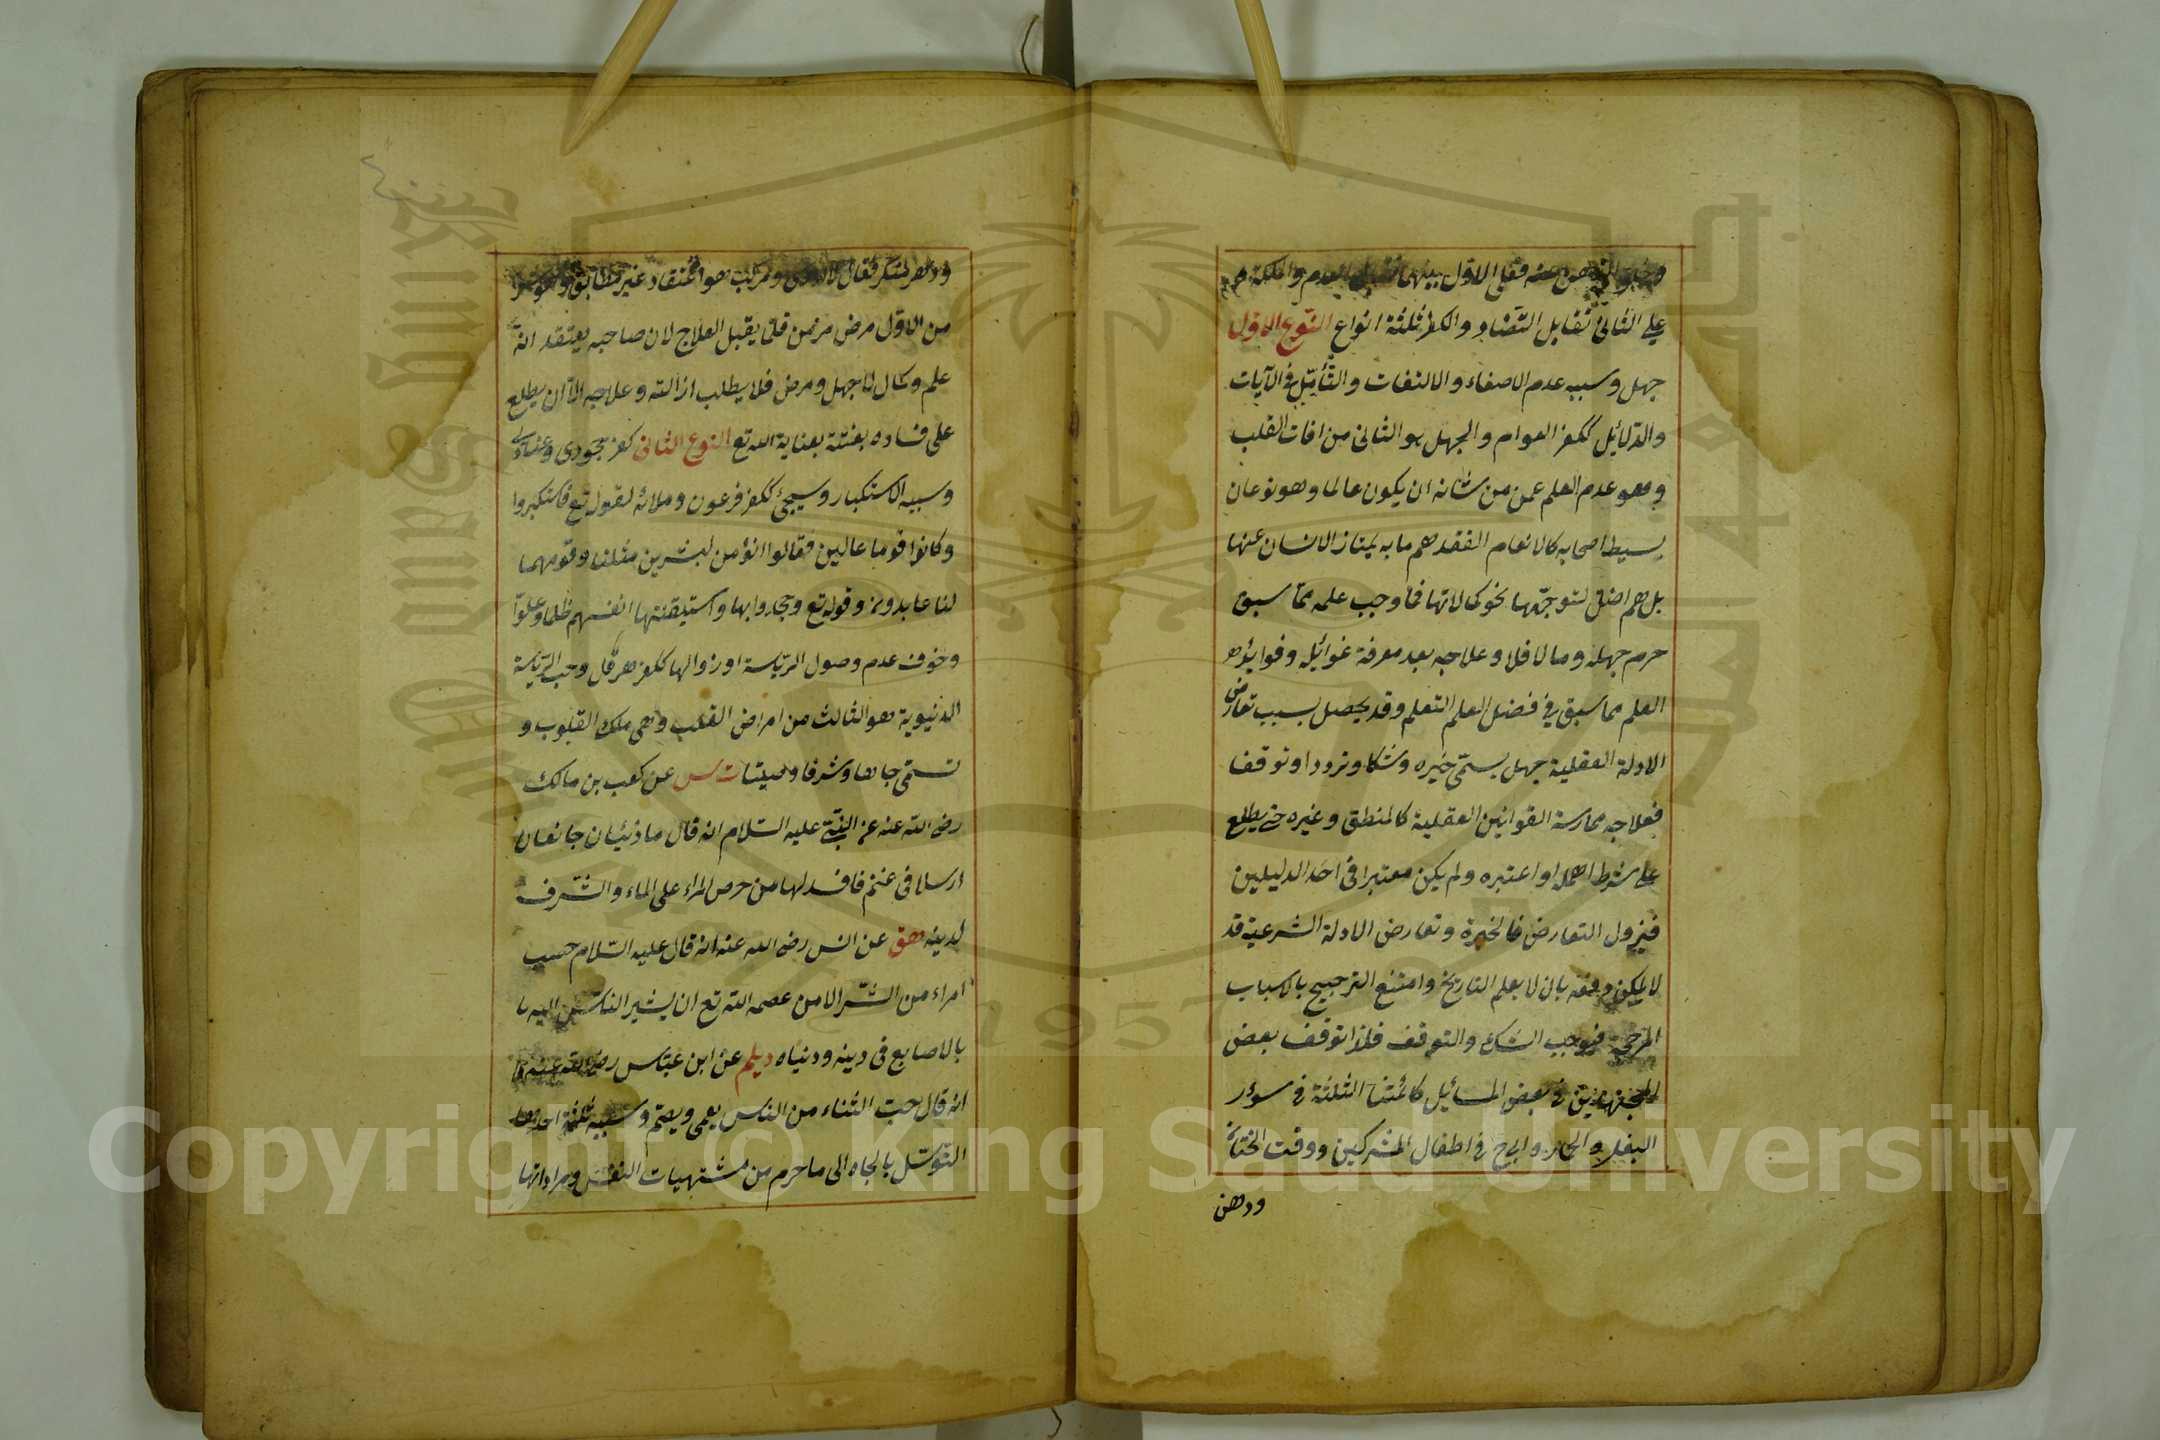 فعلى الاول بينهما تقابل العدم والملكة و
على الثانى تقابل التضاد والكفر ثلثة انواع النوع الاول
جهل وسببه عدم الاصغاء والالتفات والتأمل فى الآيات
والدلائل ككفر العوام والجهل هو الثانى من افات القلب
وهو عدم العلم عمن من شانه ان يكون عالما وهو نوعان
بسيط اصحابه كالانعام لفقدهم ما به يمتاز الانسان عنها
بل هم اضل لتوجهها نحو كمالاتها فما وجب علمه مما سبق
حرم جهله وما لا فلا وعلاجه بعد معرفة غوائله وفوائد
العلم مما سبق فى فضل العلم التعلم وقد يحصل بسبب تعارض
الادلة العقلية جهل يسمى حيرة وشكا وترددا وتوقفا
فعلاجه ممارسة القوانين العقلية كالمنطق وغيره حتى يطلع
على شرط اهمله او اعتبره ولم يكن معتبرا فى احد الدليلين
فيزول التعارض فالحيرة وتعارض الادلة الشرعية قد
لا يمكن دفعه بان لا يعلم التاريخ وامتنع الترجيح بالاسباب
المرجحة فيوجب الشك والتوقف فلذا توقف بعض
المجتهدين فى بعض المسائل كائمتنا الثلثة فى سؤر
البغل والحمار وابى ح فى اطفال المشركين ووقت الختان
ودهر
ودهر منكر فقال لا ادرى ومركب هو اعتقاد غير مطابق وهو شر
من الاول مرض مزمن قلما يقبل العلاج لان صاحبه يعتقد انه
علم وكمال لا جهل ومرض فلا يطلب ازالته وعلاجه الا ان يطلع
على فساده بغتة بعناية الله تع النوع الثانى كفر جحودى وعنادى
وسببه الاستكبار وسيجئ ككفر فرعون وملائه لقوله تع فاستكبروا
وكانوا قوما عالين فقالوا انؤمن لبشرين مثلنا وقومهما
لنا عابدون وقوله تع وجحدوا بها واستيقنتها انفسهم ظلما وعلوا
وخوف عدم وصول الرياسة او زوالها ككفر هرقل وحب الرياسة
الدنيوية هو الثالث من امراض القلب وهى ملك القلوب و
تسمى جاها وشرفا وصيتا ت س عن كعب بن مالك
رضى الله عنه عن النبى عليه السلام انه قال ما ذئبان جائعان
ارسلا فى غنم فافسد لها من حرص المرء على الماء والشرف
لدينه هق عن انس رضى الله عنه انه قال عليه السلام حسب
امراء من الشر الا من عصمه الله تع ان يشير الناس اليه
بالاصابع فى دينه ودنياه ديلم عن ابن عباس رضى الله عنهما
انه قال حب الثناء من الناس يعمى ويصم وسببه ثلثة احدها
التوسل بالجاه الى ما حرم من مشتهيات النفس ومراداتها
Copyright © King Saud University
King Saud University
1957